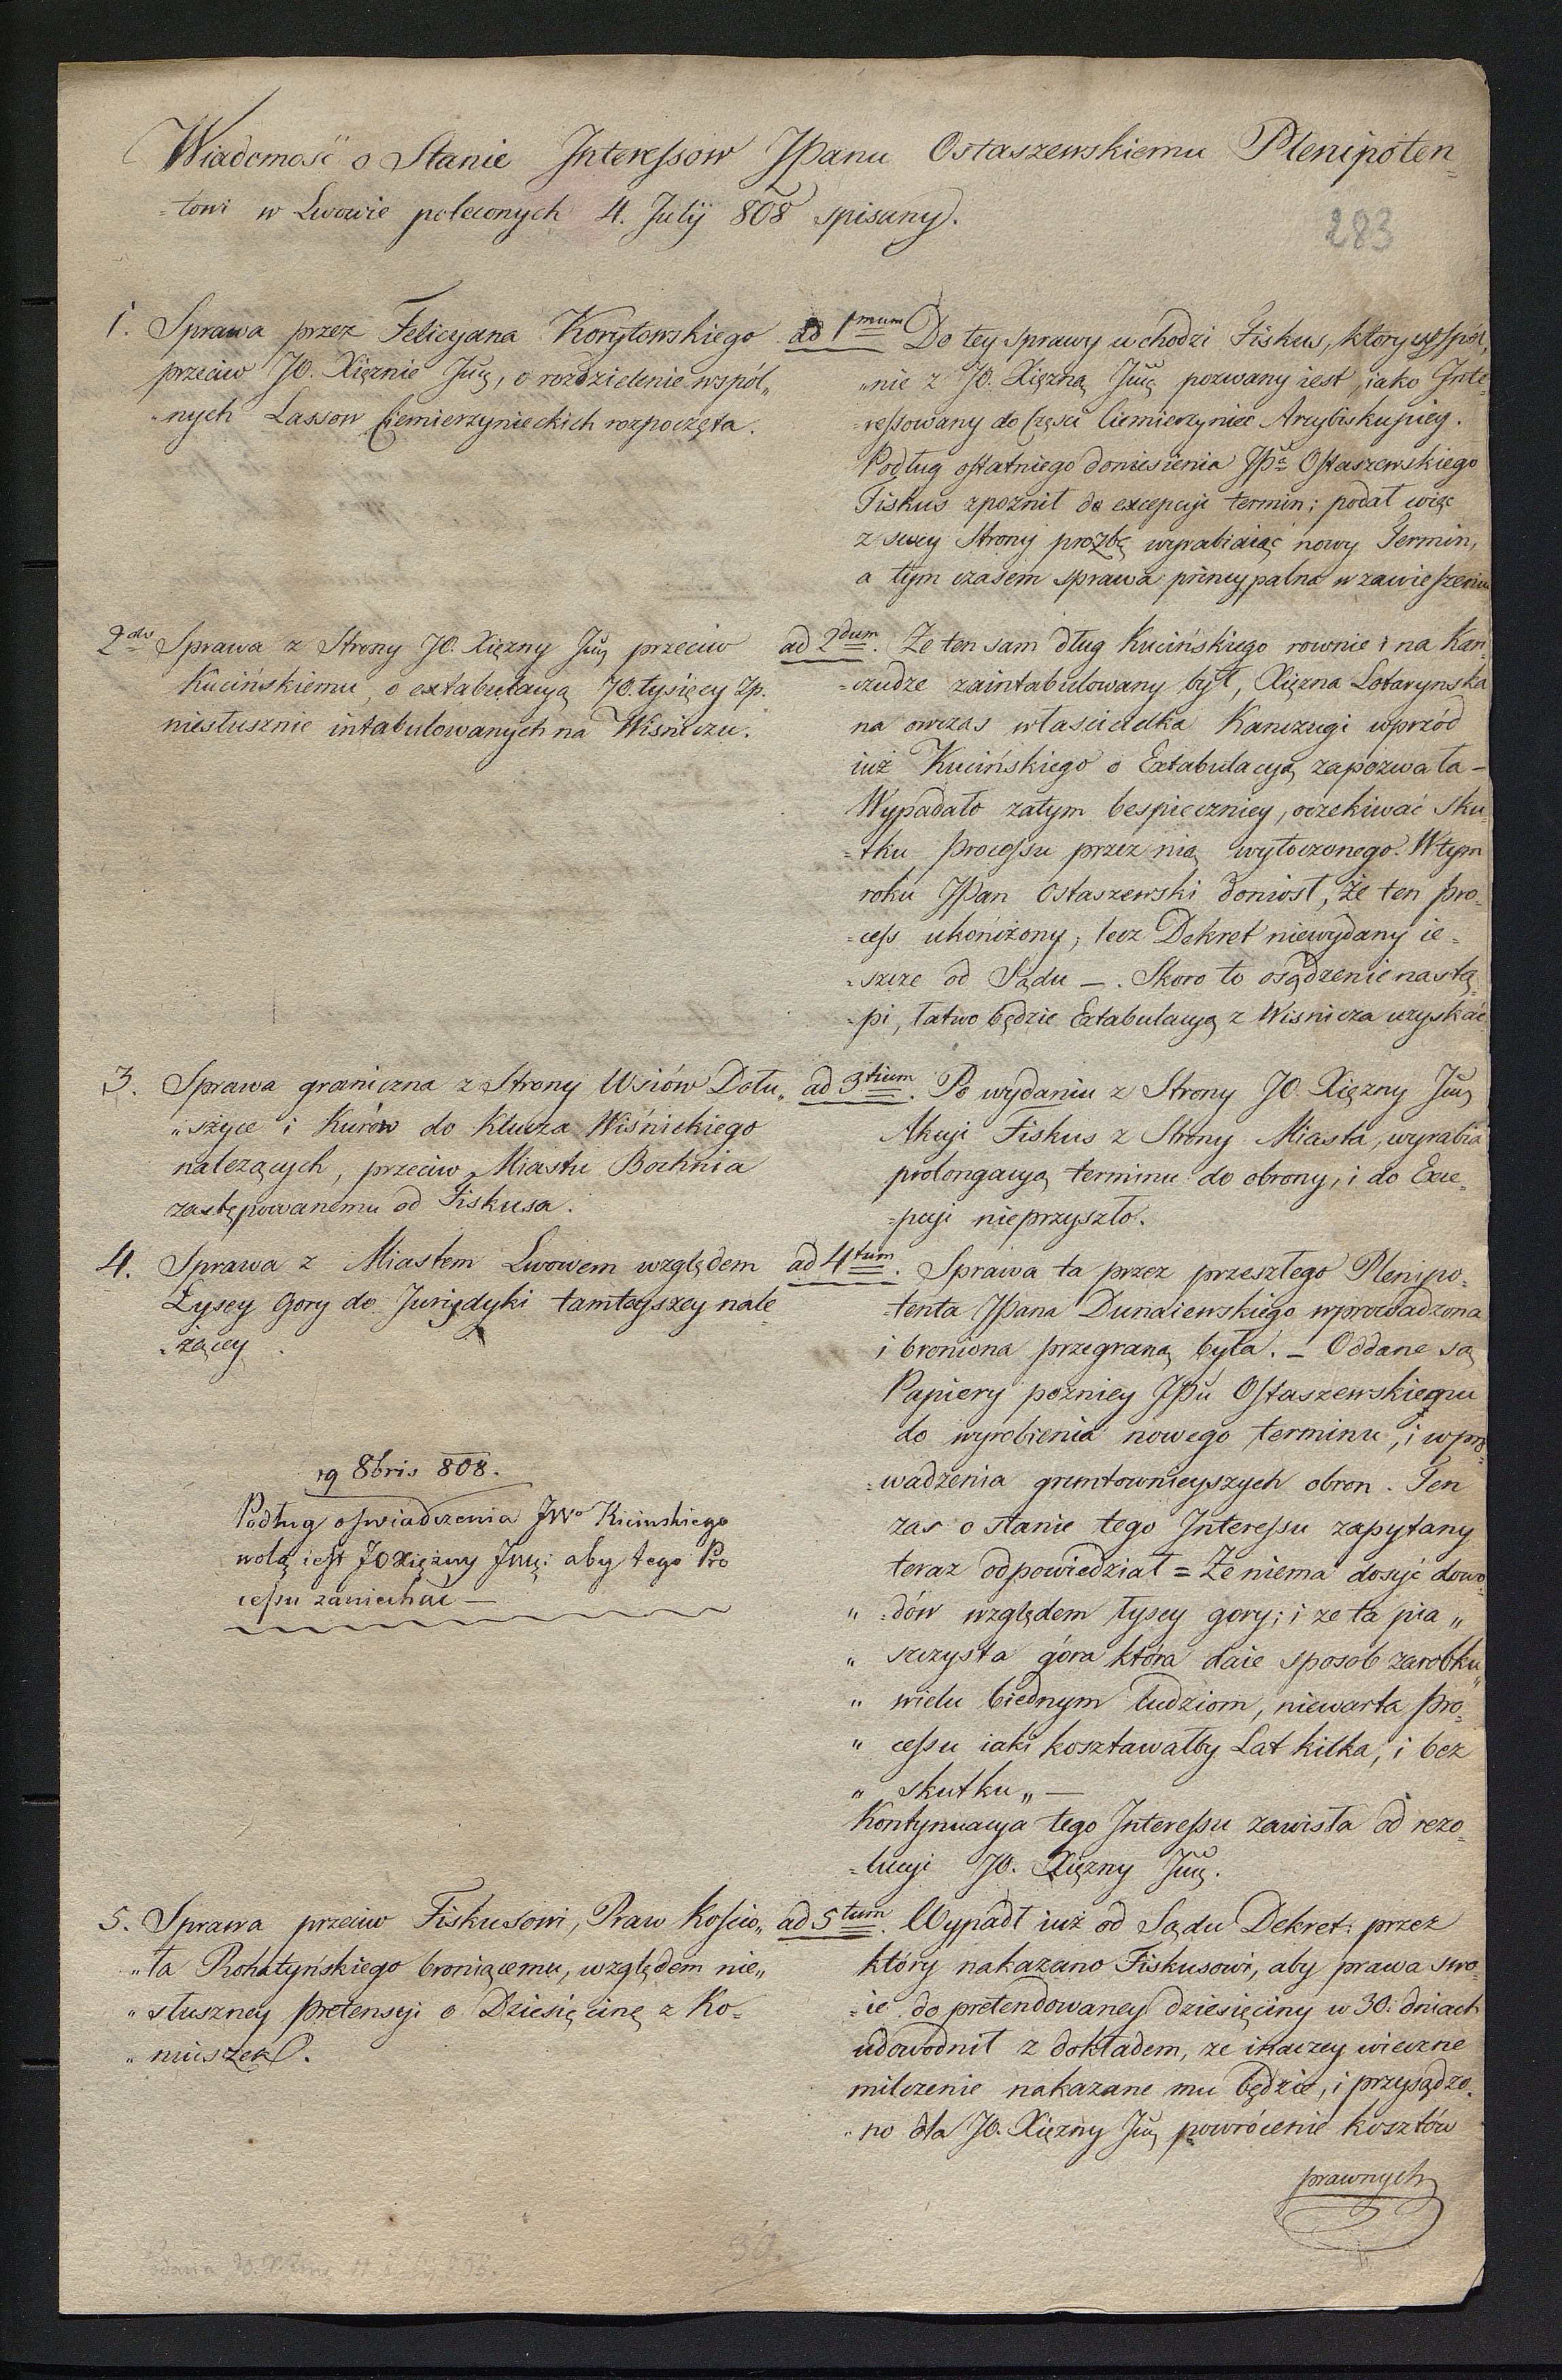 Wiadomość o Stanie Interessow JPanu Ostaszewskiemu Plenipoten=
=towi w Lwowie poleconych 4. Julij 808 spisany.
283
1. Sprawa przez Felicyana Korytowskiego
przeciw JO. Xiężnie Jmę, o rozdzielenie wspól„
„nych Lassow Ciemierzynieckich rozpoczęta.
ad 1mum Do tey sprawy wchodzi Fiskus, ktory wspól„
„nie z JO. Xiężną Jmę pozwany iest, iako Inte=
=ressowany do Części Ciemierzyniec Arcybiskupieg.
Podług ostatniego doniesienia JPa Ostaszewskiego
Fiskus zpoznił do excepcyi termin; podał więc
z swey Strony prozbę wyrabiaiąc nowy Termin,
a tym czasem sprawa pryncypalna w zawieszeniu
2do Sprawa z Strony JO. Xiężny Jmę przeciw
Kucińskiemu, o extabulacyą 70. tysięcy Zp.
niesłusznie intabulowanych na Wisniczu.
ad 2dum. Że ten sam dług Kucińskiego rownie i na Kan=
=czudze zaintabulowany był, Xiężna Lotarynska
na owczas własciielka Kanczugi wprzód
iuż Kucińskiego o Extabulacyą zapozwała –
Wypadało zatym bespieczniey, oczekiwać sku=
=tku Processu przez nią wytoczonego. W tym
roku JPan Ostaszewski doniosł, że ten pro=
=cess ukończony; lecz Dekret niewydany ie=
=szcze od Sądu –. Skoro to osądzenie nastę=
=pi, łatwo będzie Extabulacyą z Wisnicza uzyskać
3. Sprawa graniczna z Strony Wsiów Dołu„
„szyce i Kurów do Klucza Wiśnickiego
nalezących, przeciw Miastu Bochnia
zastępowanemu od Fiskusa.
ad 3tium. Po wydaniu z Strony JO. Xiężny Jmę
Akcyi Fiskus z Strony Miasta, wyrabia
prolongacyą terminu do obrony, i do Exce=
=pcyi nieprzyszło.
4. Sprawa z Miastem Lwowem względem
Łysey Gory do Jurisdyki tamteyszey nale
=żącey.
ad 4tum. Sprawa ta przez przeszłego Plenipo=
=tenta JPana Dunaiewskiego wprowadzona
i broniona przegraną była. – Oddane są
Papiery pozniey JPu Ostaszewskiemu
do wyrobienia nowego terminu, i wpro=
=wadzenia gruntownieyszych obron. Ten
zas o stanie tego Interessu zapytany
teraz odpowiedział = Że niema dosyć dowo=
„ =dów względem łysey gory; i ze ta pia„
„ szczysta góra która daie sposob zarobku
„ wielu biednym ludziom, niewarta pro=
„ cessu iaki kosztawałby Lat kilka, i bez
„ skutku„ —
Kontynuacya tego Interessu zawisła od rezo=
=lucyi JO. Xiężny Jmę.
19 8bris 808.
Podług oswiadczenia JWo Kicinskiego
wolą iest JOXiężny Jmę: aby tego Pro
cessu zaniechać —
5. Sprawa przeciw Fiskusowi, Praw Kościo„
„ła Rohatyńskiego broniącemu, względem nie„
„słuszney pretensyi o Dziesięcinę z Ko=
„niuszek.
ad 5tum. Wypadł iuż od Sądu Dekret: przez
który nakazano Fiskusowi, aby prawa swo=
=ie do pretendowaney dziesięciny w 30. dniach
udowodnił z dokładem, ze inaczey wieczne
milczenie nakazane mu będzie, i przysądzo=
„no dla JO. Xiężny Jmę powrócenie kosztów
prawnych